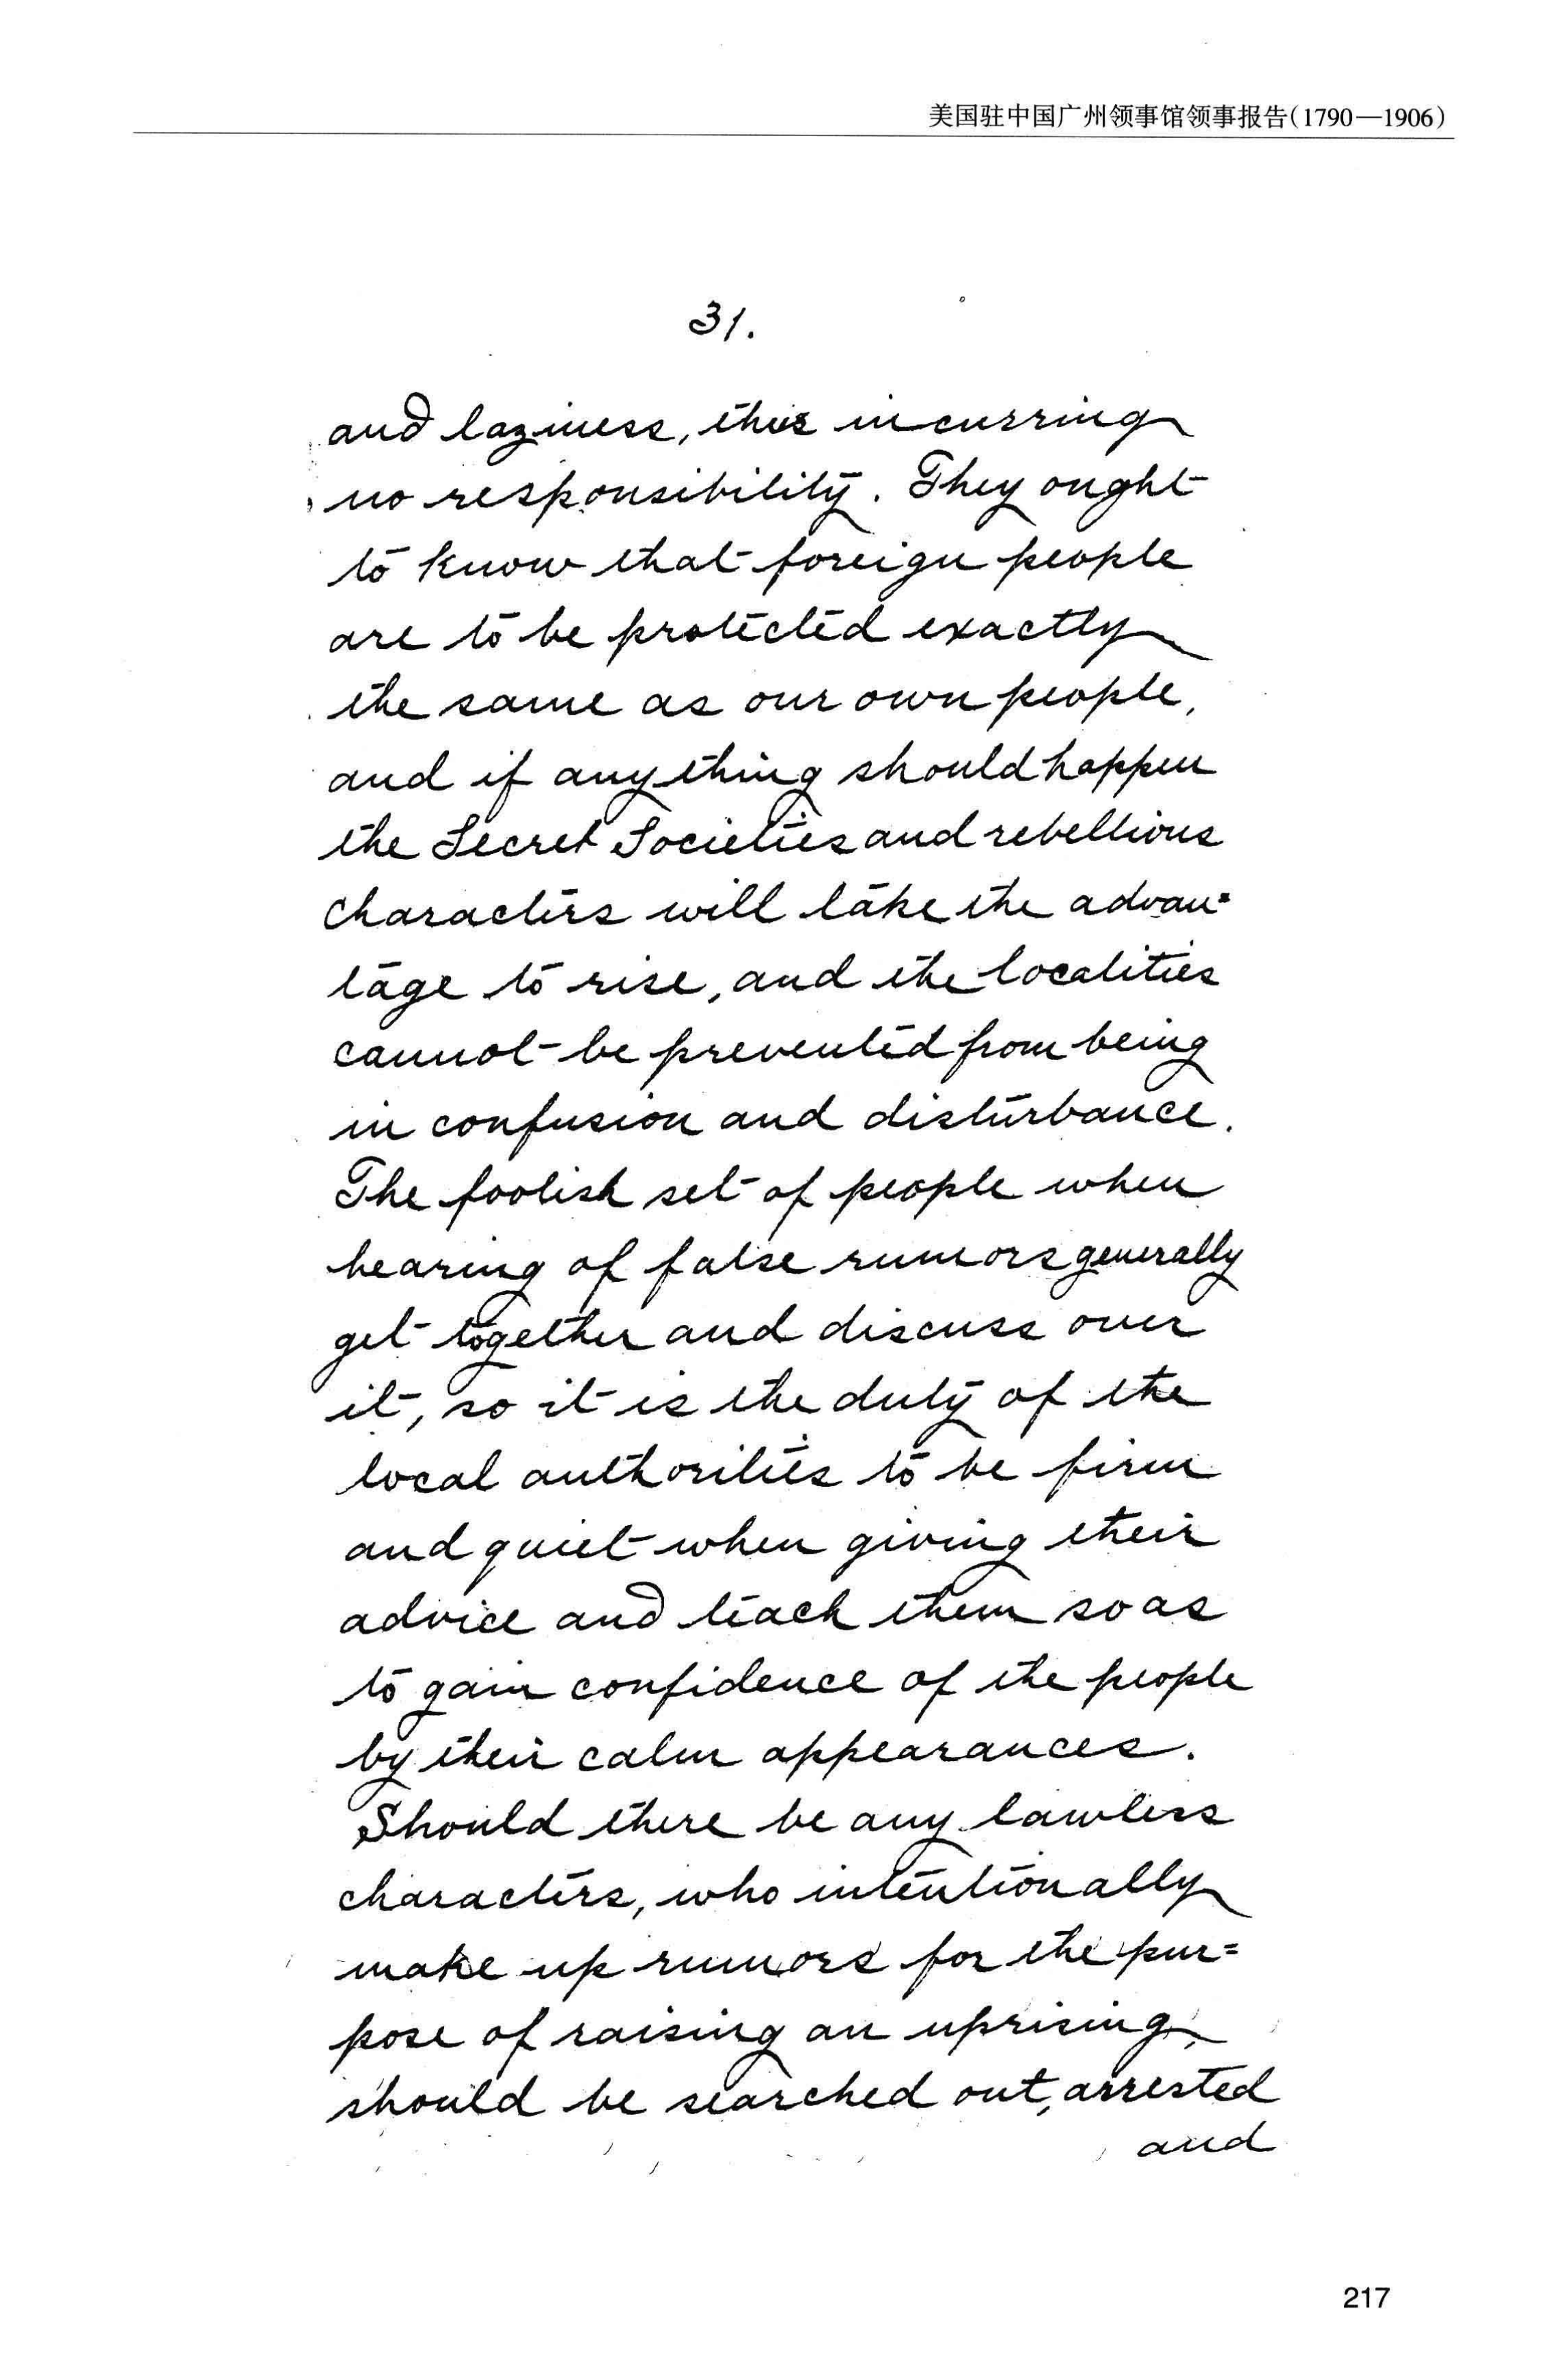 美国驻中国广州领事馆领事报告(1790—1906)
31.
and laziness, thus incurring
no responsibility. They ought
to know that foreign people
are to be protected exactly
the same as our own people,
and if anything should happen
the Secret Societies and rebellious
characters will take the advan=
tage to rise, and the localities
cannot be prevented from being
in confusion and disturbance.
The foolish set of people when
hearing of false rumors generally
get together and discuss over
it, so it is the duty of the
local authorities to be firm
and quiet when giving their
advice and teach them so as
to gain confidence of the people
by their calm appearances.
Should there be any lawless
characters, who intentionally
make up rumors for the pur=
pose of raising an uprising,
should be searched out, arrested
and
217